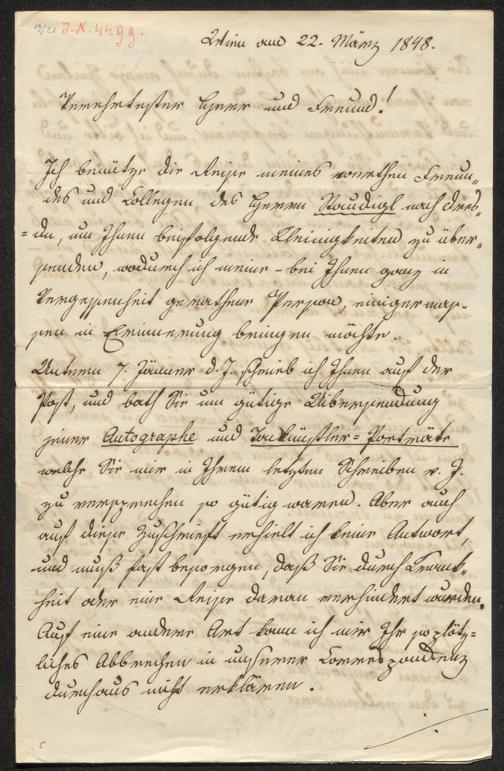 19/21 J. N. 4499.
Wien am 22. März 1848.
Verehrtester Herr und Freund!
Ich benütze die Reise meines werthen Freun„
des und Collegen des Herrn Staudigl nach Dres„
=den, um Ihnen beifolgende Kleinigkeiten zu über„
senden, wodurch ich meine – bei Ihnen ganz in
Vergessenheit gerathene Person, einigermas„
sen in Erinnerung bringen möchte.
Unterm 7. Jänner d. J. schrieb ich Ihnen auf der
Post, und bath Sie um gütige Übersendung
jener Autographe und Tonkünstler=Porträte
welche Sie mir in Ihrem letzten Schreiben v. J.
zu versprechen so gütig waren. Aber auch
auf diese Zuschrift erhielt ich keine Antwort,
und muß fast besorgen, daß Sie durch Krank„
heit oder eine Reise daran verhindert wurden.
Auf eine andere Art kann ich mir Ihr so plötz=
liches Abbrechen in unserer Correspondenz
durchaus nicht erklären.